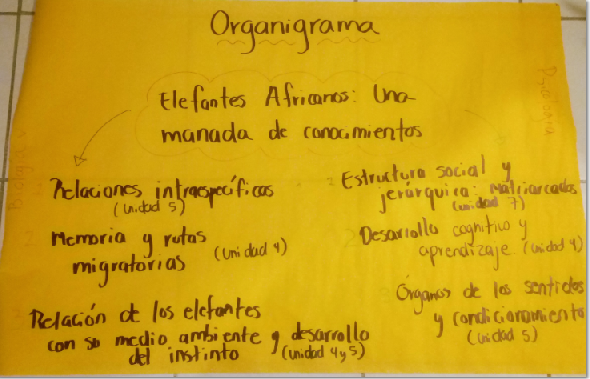 Organigrama
Elefantes Africanos: Una
manada de conocimientos
Biología
Psicología
Relaciones intraespecíficas
(Unidad 5)
Memoria y rutas
migratorias
(unidad 4)
Relación de los elefantes
con su medio ambiente y desarrollo
del instinto
(unidad 4 y 5)
Estructura social y
jerárquica: Matriarcados
(unidad 7)
Desarrollo cognitivo y
aprendizaje (unidad 4)
Órganos de los sentidos
y condicionamiento
(unidad 5)